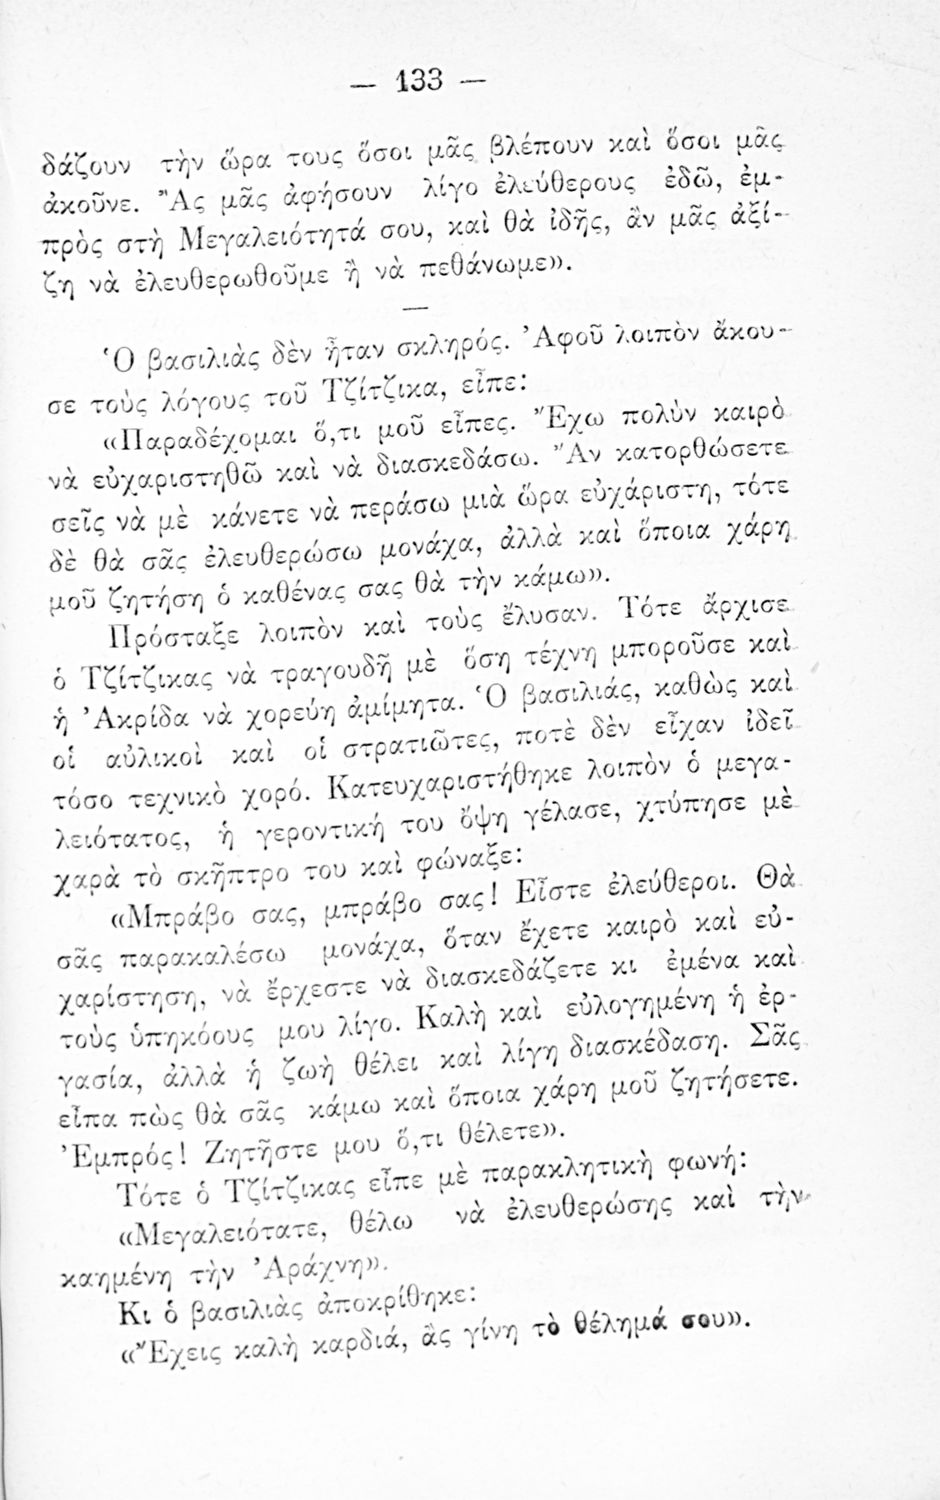 — 133 —
δάζουν τὴν ὥρα τους ὅσοι μᾶς βλέπουν καὶ ὅσοι μᾶς
ἀκοῦνε. Ἂς μᾶς ἀφήσουν λίγο ἐλεύθερους ἐδῶ, ἐμ-
πρὸς στὴ Μεγαλειότητά σου, καὶ θὰ ἰδῇς, ἂν μᾶς ἀξί-
ζῃ νὰ ἐλευθερωθοῦμε ἢ νὰ πεθάνωμε».
—
Ὁ βασιλιὰς δὲν ἦταν σκληρός. Ἀφοῦ λοιπὸν ἄκου-
σε τοὺς λόγους τοῦ Τζίτζικα, εἶπε:
«Παραδέχομαι ὅ,τι μοῦ εἶπες. Ἔχω πολὺν καιρὸ
νὰ εὐχαριστηθῶ καὶ νὰ διασκεδάσω. Ἂν κατορθώσετε
σεῖς νὰ μὲ κάνετε νὰ περάσω μιὰ ὥρα εὐχάριστη, τότε
δὲ θὰ σᾶς ἐλευθερώσω μονάχα, ἀλλὰ καὶ ὅποια χάρη
μοῦ ζητήση ὁ καθένας σας θὰ τὴν κάμω».
Πρόσταξε λοιπὸν καὶ τοὺς ἔλυσαν. Τότε ἄρχισε
ὁ Τζίτζικας νὰ τραγουδῇ μὲ ὅση τέχνη μποροῦσε καὶ
ἡ Ἀκρίδα νὰ χορεύη ἀμίμητα. Ὁ βασιλιάς, καθὼς καὶ
οἱ αὐλικοὶ καὶ οἱ στρατιῶτες, ποτὲ δὲν εἶχαν ἰδεῖ
τόσο τεχνικὸ χορό. Κατευχαριστήθηκε λοιπὸν ὁ μεγα-
λειότατος, ἡ γεροντική του ὄψη γέλασε, χτύπησε μὲ
χαρὰ τὸ σκῆπτρο του καὶ φώναξε:
«Μπράβο σας, μπράβο σας! Εἶστε ἐλεύθεροι. Θὰ
σᾶς παρακαλέσω μονάχα, ὅταν ἔχετε καιρὸ καὶ εὐ-
χαρίστηση, νὰ ἔρχεστε νὰ διασκεδάζετε κι ἐμένα καὶ
τοὺς ὑπηκόους μου λίγο. Καλὴ καὶ εὐλογημένη ἡ ἐρ-
γασία, ἀλλὰ ἡ ζωὴ θέλει καὶ λίγη διασκέδαση. Σᾶς
εἶπα πὼς θὰ σᾶς κάμω καὶ ὅποια χάρη μοῦ ζητήσετε.
Ἐμπρός! Ζητῆστε μου ὅ,τι θέλετε».
Τότε ὁ Τζίτζικας εἶπε μὲ παρακλητικὴ φωνή:
«Μεγαλειότατε, θέλω νὰ ἐλευθερώσης καὶ τὴν
καημένη τὴν Ἀράχνη».
Κι ὁ βασιλιὰς ἀποκρίθηκε:
«Ἔχεις καλὴ καρδιά, ἂς γίνη τὸ θέλημά σου».